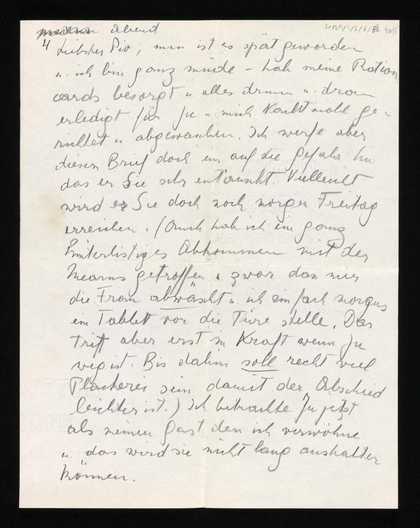 abend
4
Liebster Pio, nun ist es spät geworden
u. ich bin ganz müde – hab meine Ration
cards besorgt u alles drum u. dran
erledigt für Ju u mich Kohl
u abgewaschen. Ich werfe aber
diesen Brief doch ein auf die Gefahr hin
das er Sie sehr entäuscht. Vielleicht
wird er Sie doch noch morgen Freitag
erreichen. (Auch hab ich ein ganz
hinterlistiges Abkommen mit der
Mearns getroffen u zwar das mir
die Frau abwäscht u ich einfach morgens
ein Tablet vor die Türe stelle. Das
tritt aber erst in Kraft wenn Ju
weg ist. Bis dahin soll recht viel
Plackerei sein damit der Abschied
leichter ist.) Ich betrachte Ju jetzt
als meinen Gast den ich verwöhne
u das wird sie nicht lang aushalten
können.